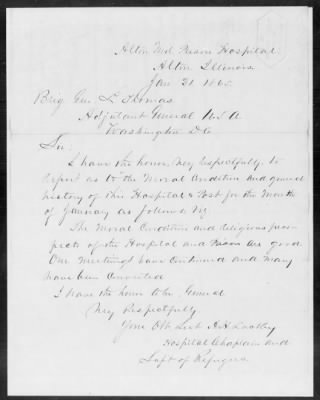 Alton Mil. Prison Hospital
Alton Illinois
Jan 31 1865.
Brig Gen. L. Thomas
Adjutant General U.S.A
Washington D.C
Sir:
I have the honor, Very Respectfully, to
report as to the Moral Condition and general
history of this Hospital & Post for the Month
of January as follows, Viz
The Moral Condition and religious pros-
pects of the Hospital and Prison are good
Our Meetings have continued and many
have been Converted
I have the honor to be General
Very Respectfully
Your Obt Servt H. H.
Hospital Chaplain and
Supt of Refugees